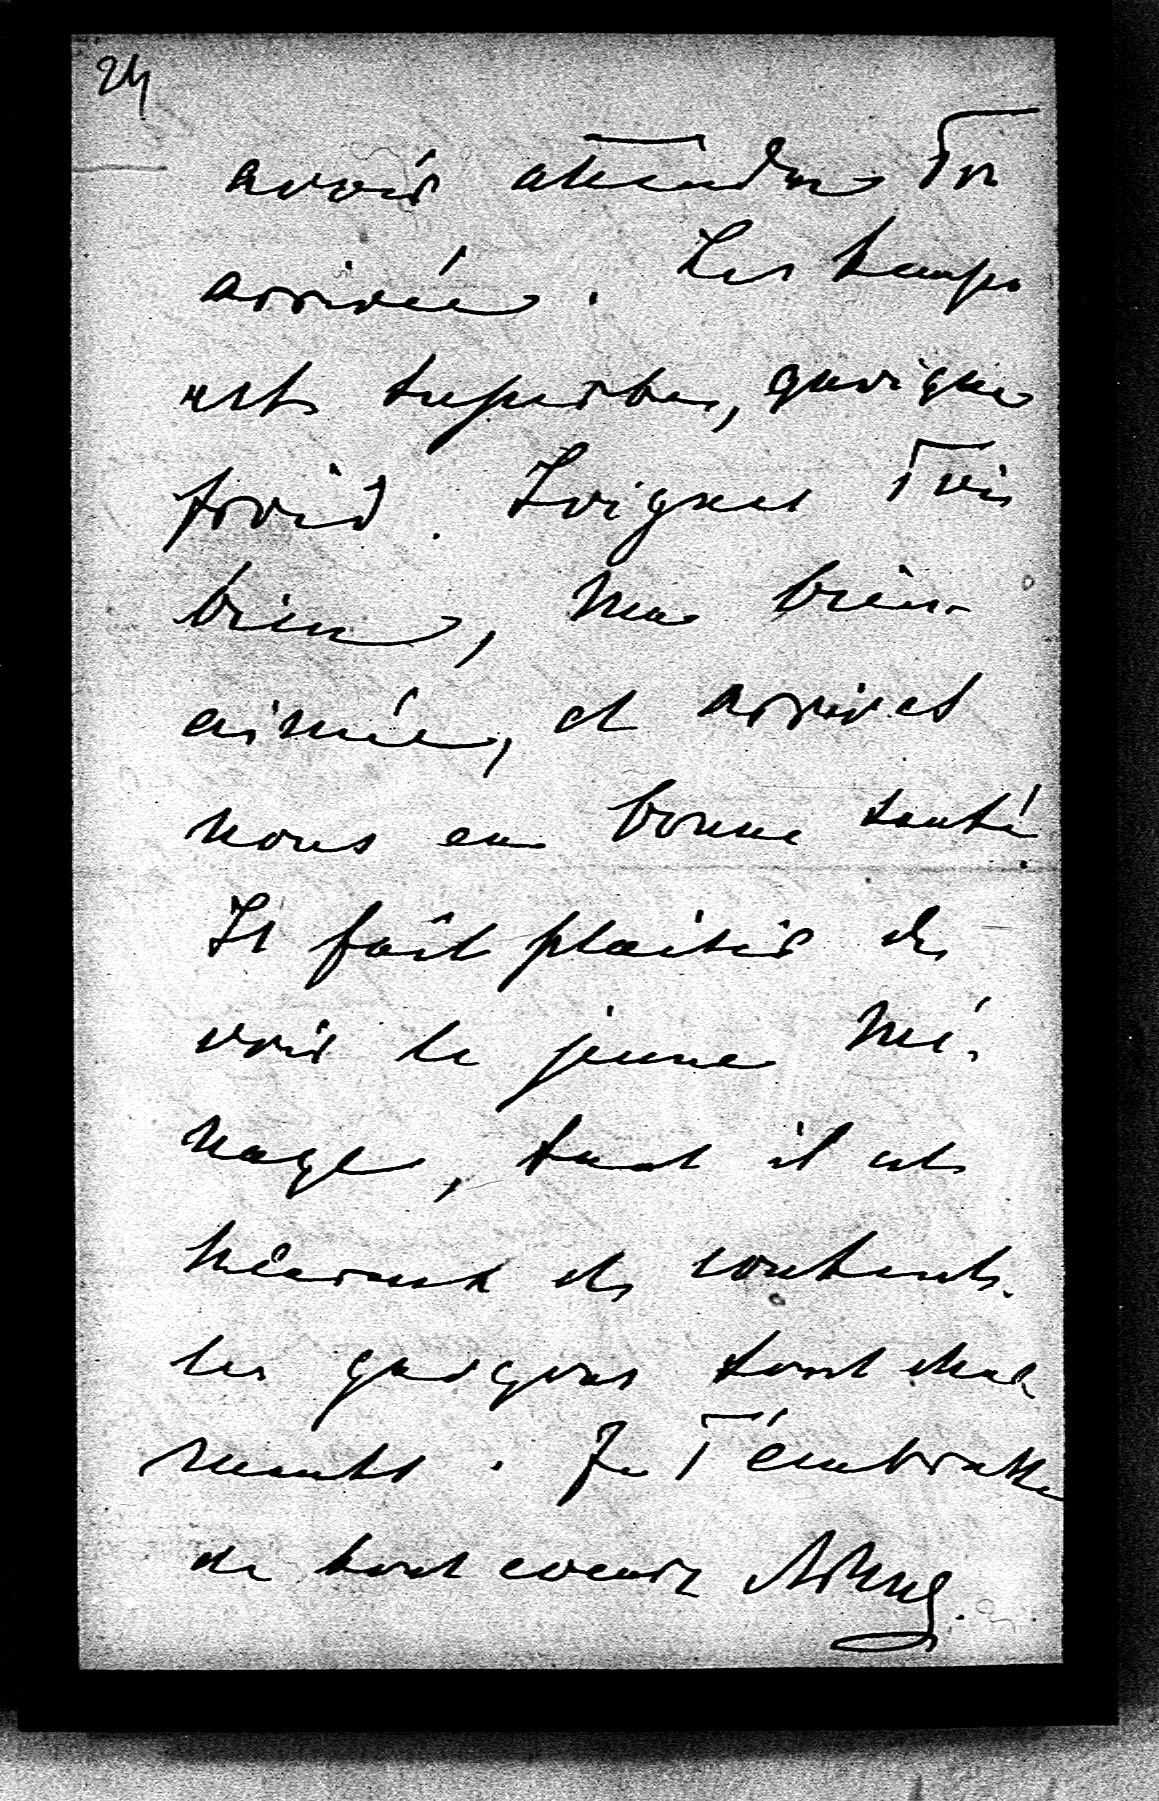 24
avoir attendre Ton
arrivée. Les temps
est superbe, quoique
froid. Soignes Toi
bien, ma bien-
aimée, et arrives
nous en bonne santé!
Il fait plaisir de
voir le jeune mé-
nage, tant il est
heureux et content.
les garçons sont char
mants. Je T'embrasse
de tout coeur